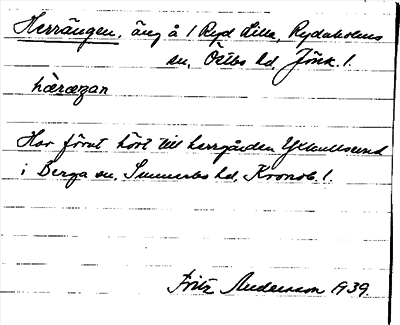 Herrängen, äng å 1 Ryd Lilla, Rydaholms
sn. Östbo hd. Jönk. l.
hæræŋan
Har förut hört till herrgården Ykullsund
i Berga sn. Sunnerbo hd. Kronob. l.
Fritz Andersson 1939.